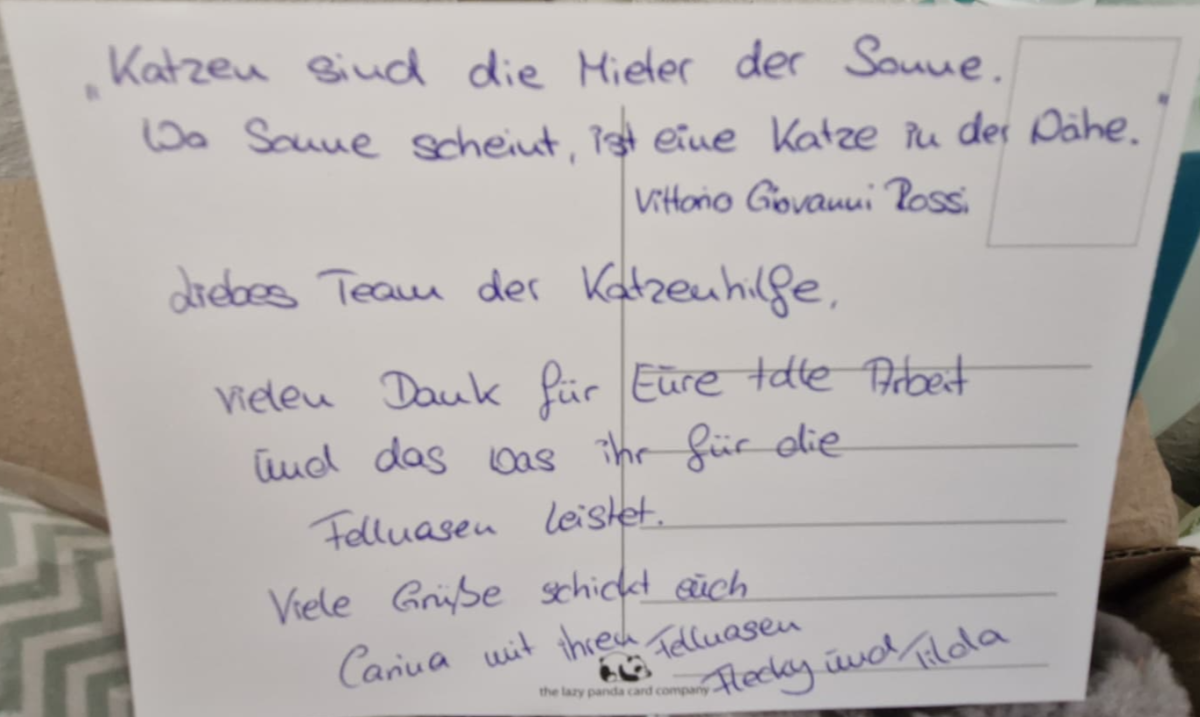 „Katzen sind die Mieter der Sonne.
Wo Sonne scheint, ist eine Katze in der Nähe."
Vittorio Giovanni Rossi
Liebes Team der Katzenhilfe,
vielen Dank für Eure tolle Arbeit
und das was ihr für die
Fellnasen leistet.
Viele Grüße schickt euch
Carina mit ihren Fellnasen
Flecky und Tilda
the lazy panda card company